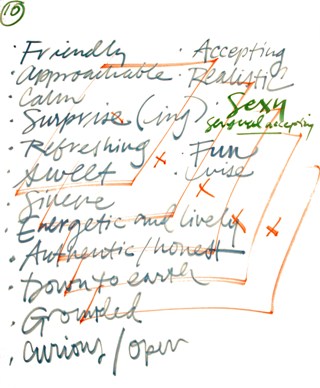 10
· Friendly
· Approachable
· Calm
· Surprise (ing)
· Refreshing
· Sweet
· Sincere
· Energetic and lively
· Authentic/honest
· Down to earth
· Grounded
· Curious/open
· Accepting
· Realistic
· Sexy
sensual accepting
· Fun
· wise